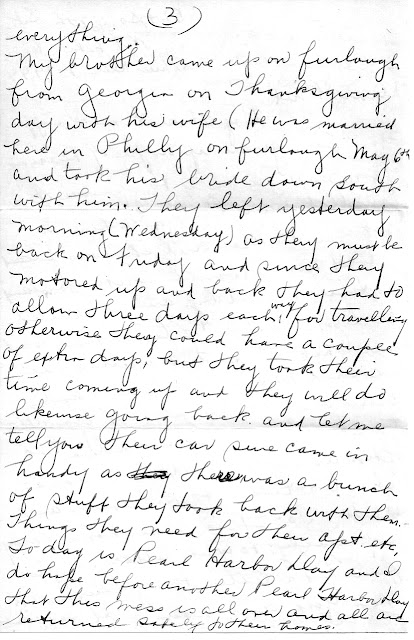 (3)
everything.
My brother came up on furlough
from Georgia on Thanksgiving
day with his wife (He was married
here in Philly on furlough May 6th
and took his bride down South
with him. They left yesterday
morning (Wednesday) as they must be
back on Friday and since they
motored up and back they had to
allow three days each way for travelling
otherwise they could have a couple
of extra days, but they took their
time coming up and they will do
likewise going back. and let me
tell you their car sure came in
handy as there was a bunch
of stuff they took back with them.
Things they need for their apt. etc.
Today is Pearl Harbor Day and I
do hope before another Pearl Harbor Day
that this mess is all over and all are
returned safely to their homes.